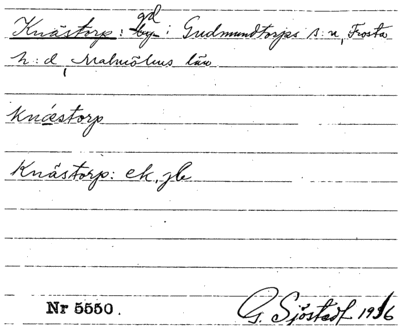 gd
Knästorp: by i Gudmundtorps s:n, Frosta
h:d, Malmöhus län
Knæstorp
Knästorp: ek. jb
Nr 5550.
G. Sjöstedt 1916